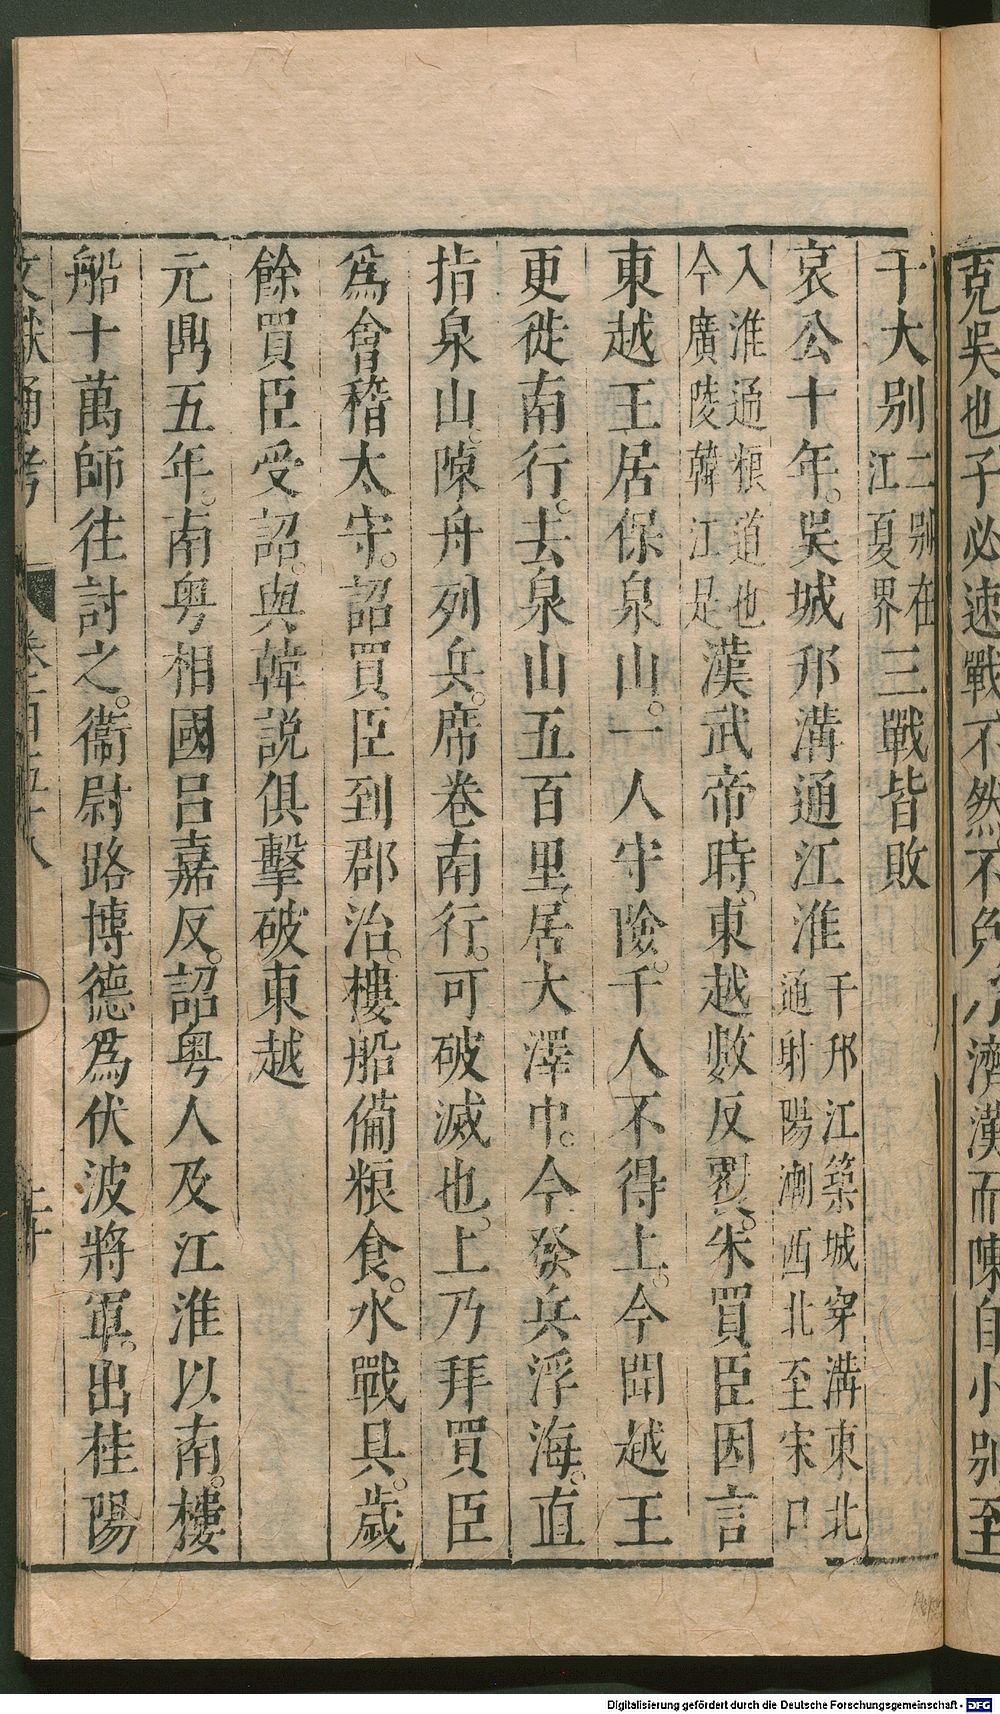 克吳也子必速戰不然不免乃濟漢而陳自小別至
于大别二别在江夏界三戰皆敗
哀公十年。吳城邗溝通江淮于邗江築城穿溝東北通射陽湖西北至宋口
入淮通粮道也今廣陵韓江是漢武帝時。東越數反覆。朱買臣因言
東越王居保泉山。一人守險。千人不得上。今聞越王
更徙南行。去泉山五百里。居大澤中。今發兵浮海。直
指泉山。陳舟列兵。席卷南行。可破滅也。上乃拜買臣
爲會稽太守。詔買臣到郡治。樓船備粮食。水戰具。歲
餘買臣受詔。與韓說俱擊破東越
元鼎五年。南粤相國呂嘉反。詔粤人及江淮以南。樓
船十萬師往討之。衞尉路博德爲伏波將軍。出桂陽
文獻通考 卷一百五十八
Digitalisierung gefördert durch die Deutsche Forschungsgemeinschaft - DFG